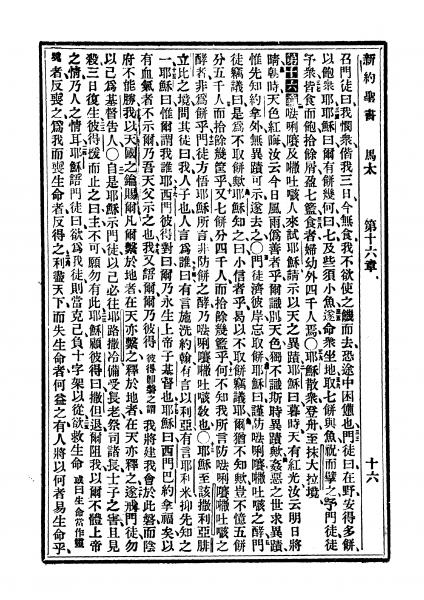 新約聖書 馬太 第十六章 十六
召門徒曰我憫衆偕我三日今無食我不欲使之饑而去恐途中困憊也門徒曰在野安得多餅
以飽衆耶穌曰爾有餅幾何曰七及些須小魚遂命衆坐地取七餅與魚祝而擘之予門徒門徒
予衆皆食而飽拾餘屑盈七籃食者婦幼外四千人焉○耶穌散衆登舟至抹大拉境
第十六章𠵽唎㘔及㗶吐㗖人來試耶穌請示以天之異蹟耶穌曰暮時天有紅光汝云明日將
晴朝時天色紅晦汝云今日風雨僞善者乎爾識別天色獨不識斯時異蹟歟姦惡之世求異蹟
惟先知約拿外無異蹟可示遂去之○門徒濟彼岸忘取餅耶穌曰謹防𠵽唎㘔㗶吐㗖之酵門
徒竊議曰是爲不取餅歟耶穌知之曰小信者乎曷以不取餅竊議耶爾猶不知歟豈不憶五餅
分五千人而拾餘幾筐乎又七餅分四千人而拾餘幾籃乎何不知我所言防𠵽唎㘔㗶吐㗖之
酵者非爲餅乎門徒方悟耶穌所言非防餅之酵乃𠵽唎㘔㗶吐㗖敎也○耶穌至該撒利亞腓
立比之境問其徒曰我人子也人言爲誰曰有言施洗約翰有言以利亞有言耶利米抑先知之
一耶穌曰惟爾謂我誰耶西門彼得對曰爾乃永生上帝子基督也耶穌曰西門巴約拿福矣以
有血氣者不示爾乃吾天父示之也我又語爾爾乃彼得彼得卽磐之謂我將建我會於此磐而陰
府不能勝我以天國之鑰賜爾凡爾繫於地者在天亦繫之釋於地者在天亦釋之遂戒門徒勿
以己爲基督告人○自是耶穌示門徒以己必往耶路撒冷備受長老祭司諸長士子之害且見
殺三日復生彼得援而止之曰主不可願勿有此耶穌顧彼得曰撒但退爾阻我以爾不體上帝
之情乃人之情耳耶穌語門徒曰欲爲我徒則當克己負十字架以從欲救生命或曰生命當作靈
魂者反喪之爲我而喪生命者反得之利盡天下而失生命者何益之有人將以何者易生命乎